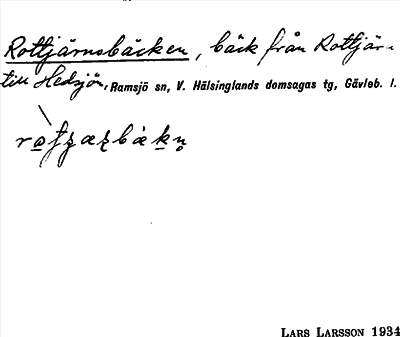 Rottjärnsbäcken, bäck från Rottjär-
till Hedsjön, Ramsjö sn, V. Hälsinglands domsagas tg, Gävleb. l.
LARS LARSSON 1934